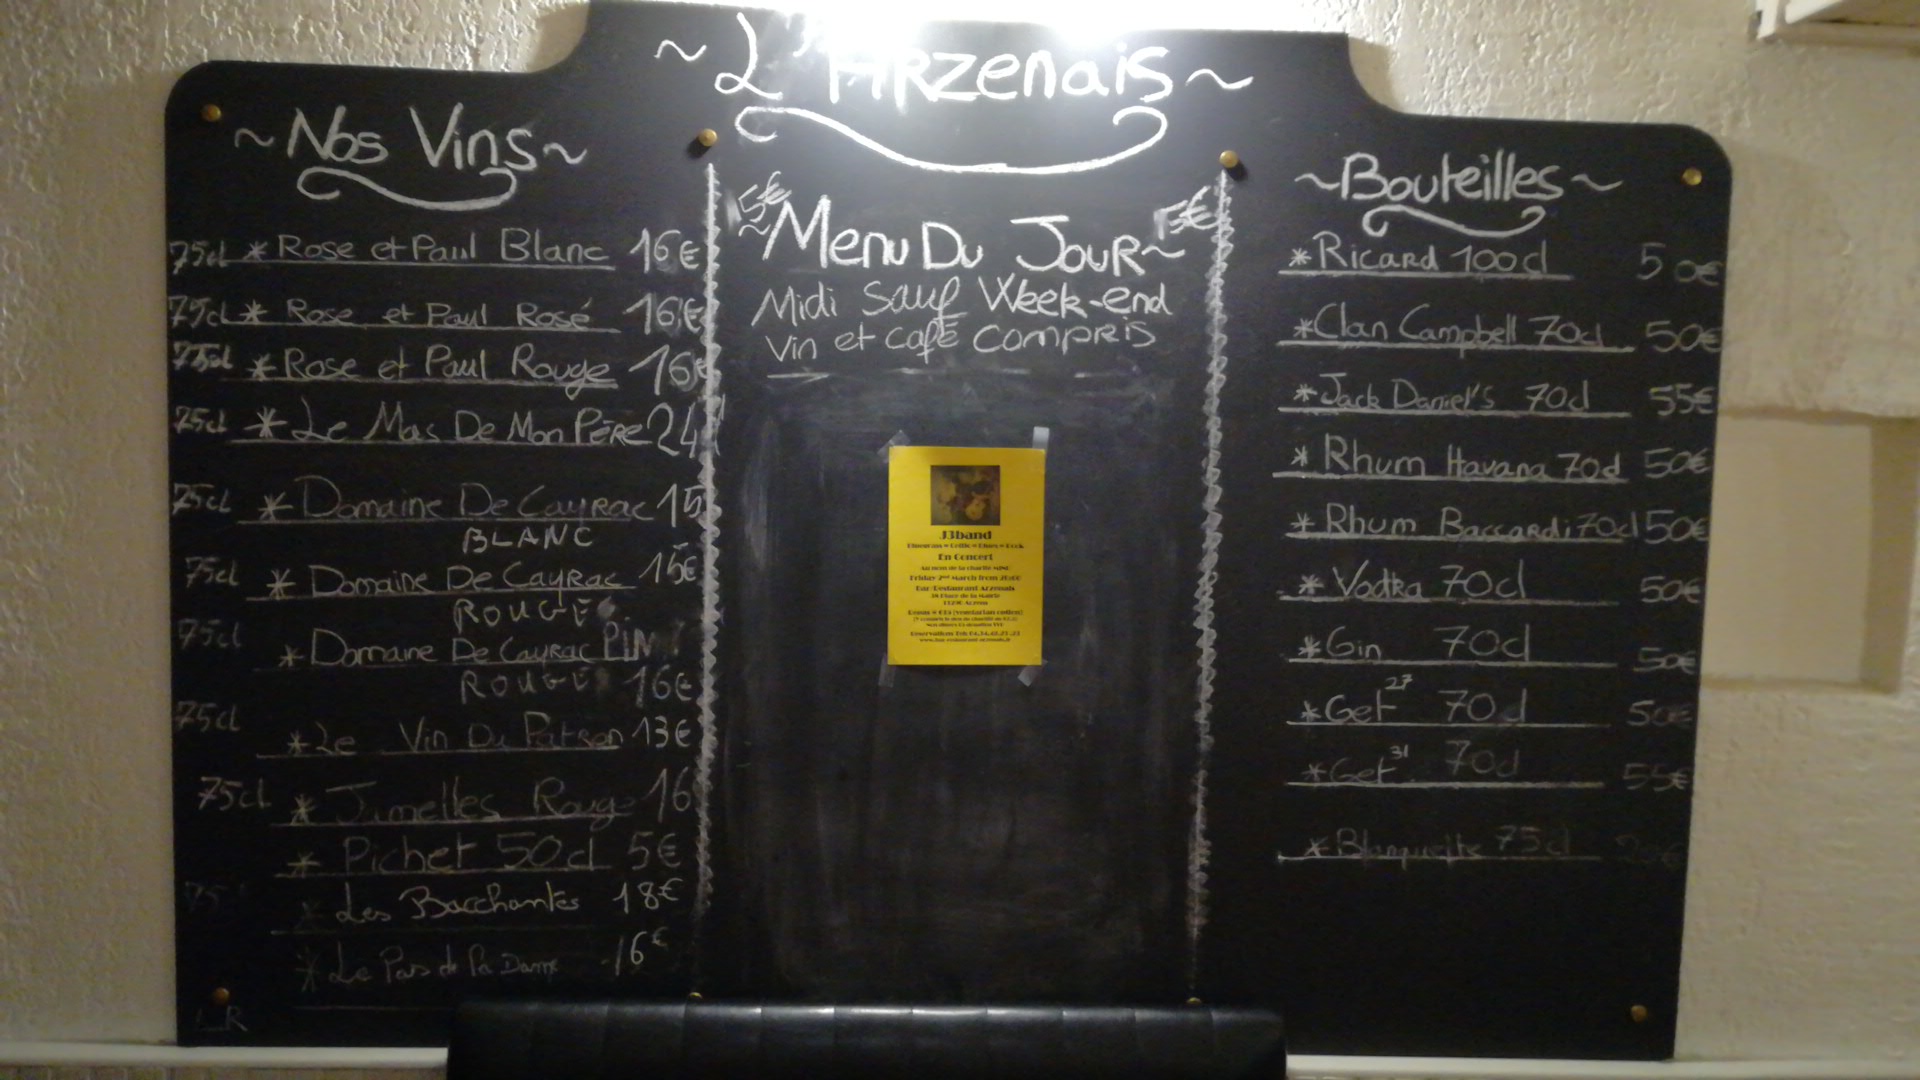 ~ L'Arzenais ~
~ Nos Vins ~
75cl * Rose et Paul Blanc 16€
75cl * Rose et Paul Rosé 16€
75cl * Rose et Paul Rouge 16€
75cl * Le Mas De Mon Père 24
75cl * Domaine De Cayrac 15
BLANC
75cl * Domaine De Cayrac 15€
ROUGE
75cl * Domaine De Cayrac
ROUGE 16€
75cl * Le Vin Du Patron 13€
75cl * Jumelles Rouge 16
* Pichet 50cl 5€
* Les Bacchantes 18€
* Le Pas de la Dame 16€
15€ ~ Menu Du Jour ~ 15€
Midi Sauf Week-end
Vin et café compris
J3band
En Concert
Friday 2nd March from 20:00
Bar-Restaurant Arzenais
~ Bouteilles ~
* Ricard 100cl 50€
* Clan Campbell 70cl 50€
* Jack Daniel's 70cl 55€
* Rhum Havana 70cl 50€
* Rhum Baccardi 70cl 50€
* Vodka 70cl 50€
* Gin 70cl 50€
* Get 27 70cl 50€
* Get 31 70cl 55€
* Blanquette 75cl